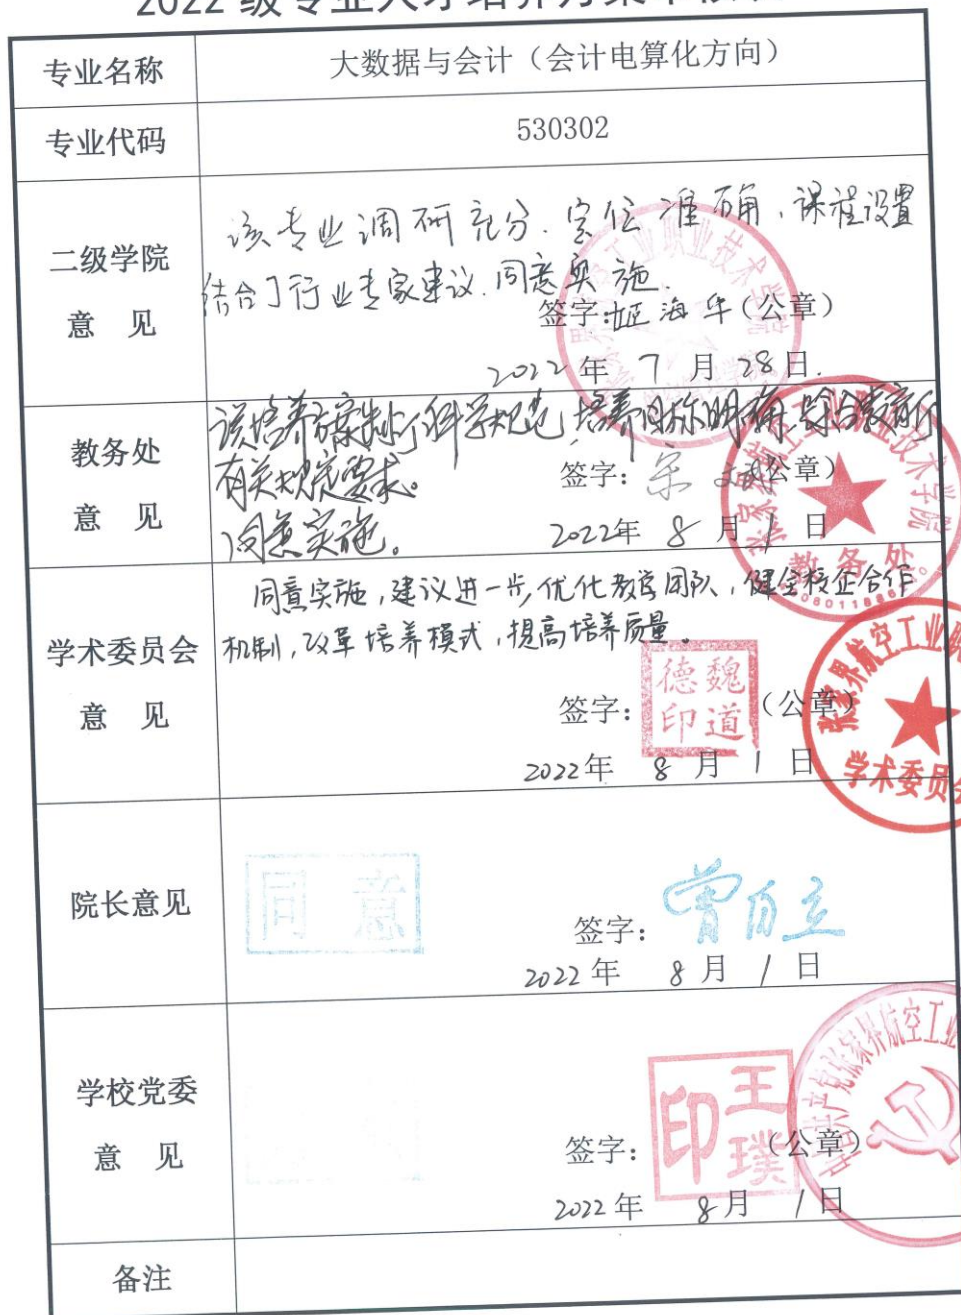 2022级专业人才培养方案审核
专业名称
大数据与会计（会计电算化方向）
专业代码
530302
二级学院
意 见
该专业调研充分、定位准确，课程设置
结合了行业专家建议.同意实施.
签字:姬海华(公章)
2022年 7 月 28日.
教务处
意 见
该培养方案制订科学规范，培养目标明确,符合教育厅
有关规定要求。
同意实施。
签字: 宋 (公章)
2022年 8 月 1 日
教务处
学术委员会
意 见
同意实施，建议进一步优化教学团队，健全校企合作
机制，改革培养模式，提高培养质量。
签字:
魏道德印
(公章)
2022年 8 月 1 日
张家界航空工业
学术委员会
院长意见
同意
签字:
曾自立
2022年 8月 1 日
学校党委
意 见
签字:
王璞印
(公章)
2022年 8月 1日
中国共产党张家界航空工业
备注